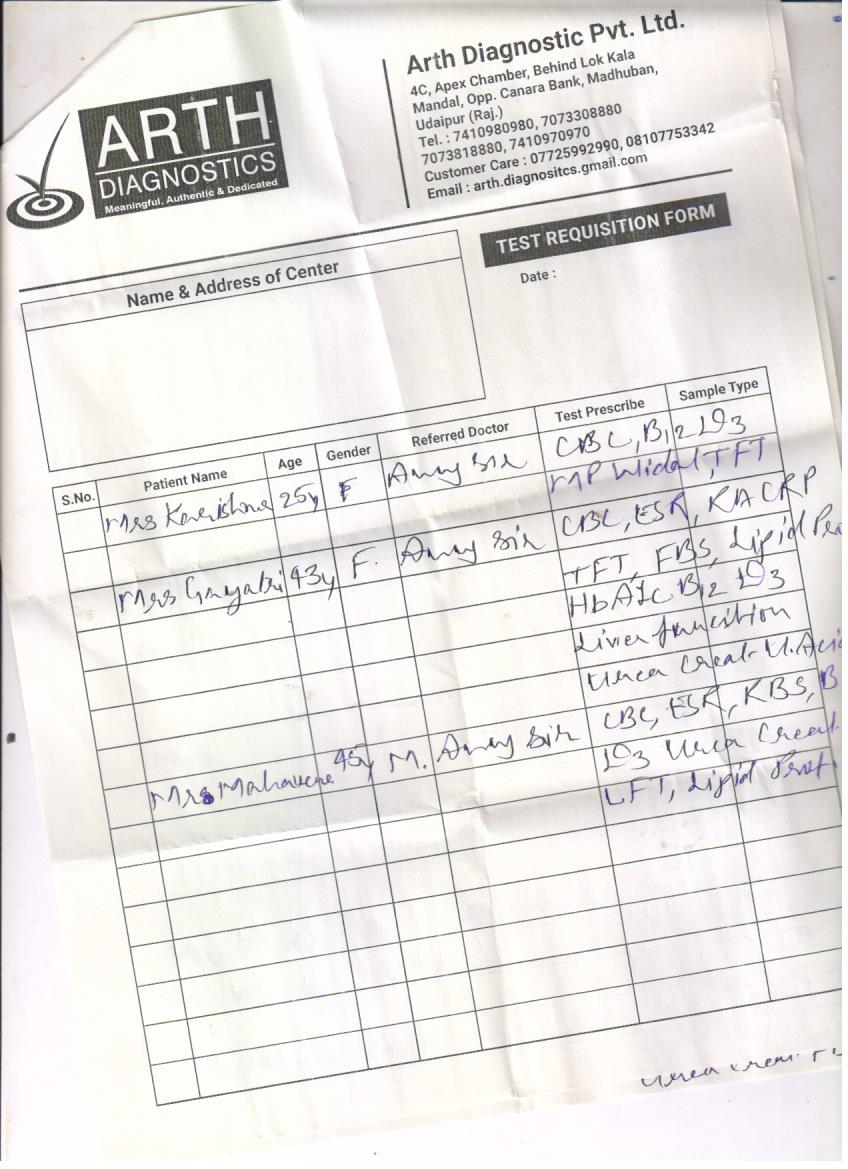 ARTH
DIAGNOSTICS
Meaningful, Authentic & Dedicated
Arth Diagnostic Pvt. Ltd.
4C, Apex Chamber, Behind Lok Kala
Mandal, Opp. Canara Bank, Madhuban,
Udaipur (Raj.)
Tel. : 7410980980, 7073308880
7073818880, 7410970970
Customer Care : 07725992990, 08107753342
Email : arth.diagnositcs.gmail.com
TEST REQUISITION FORM
Date :
Name & Address of Center
S.No. Patient Name Age Gender Referred Doctor Test Prescribe Sample Type
Mrs 25y F Sir CBC, B12 D3
MP Widal, TFT
Mrs Gayatri 43y F. Sir CBC, ESR, RA CRP
TFT, FBS, Lipid
HbA1C B12 D3
Liver function
Urea Creat. U. Acid
45y M. Sir CBC, ESR, RBS, B
D3 Urea Creat.
LFT, Lipid Prof.
Urea